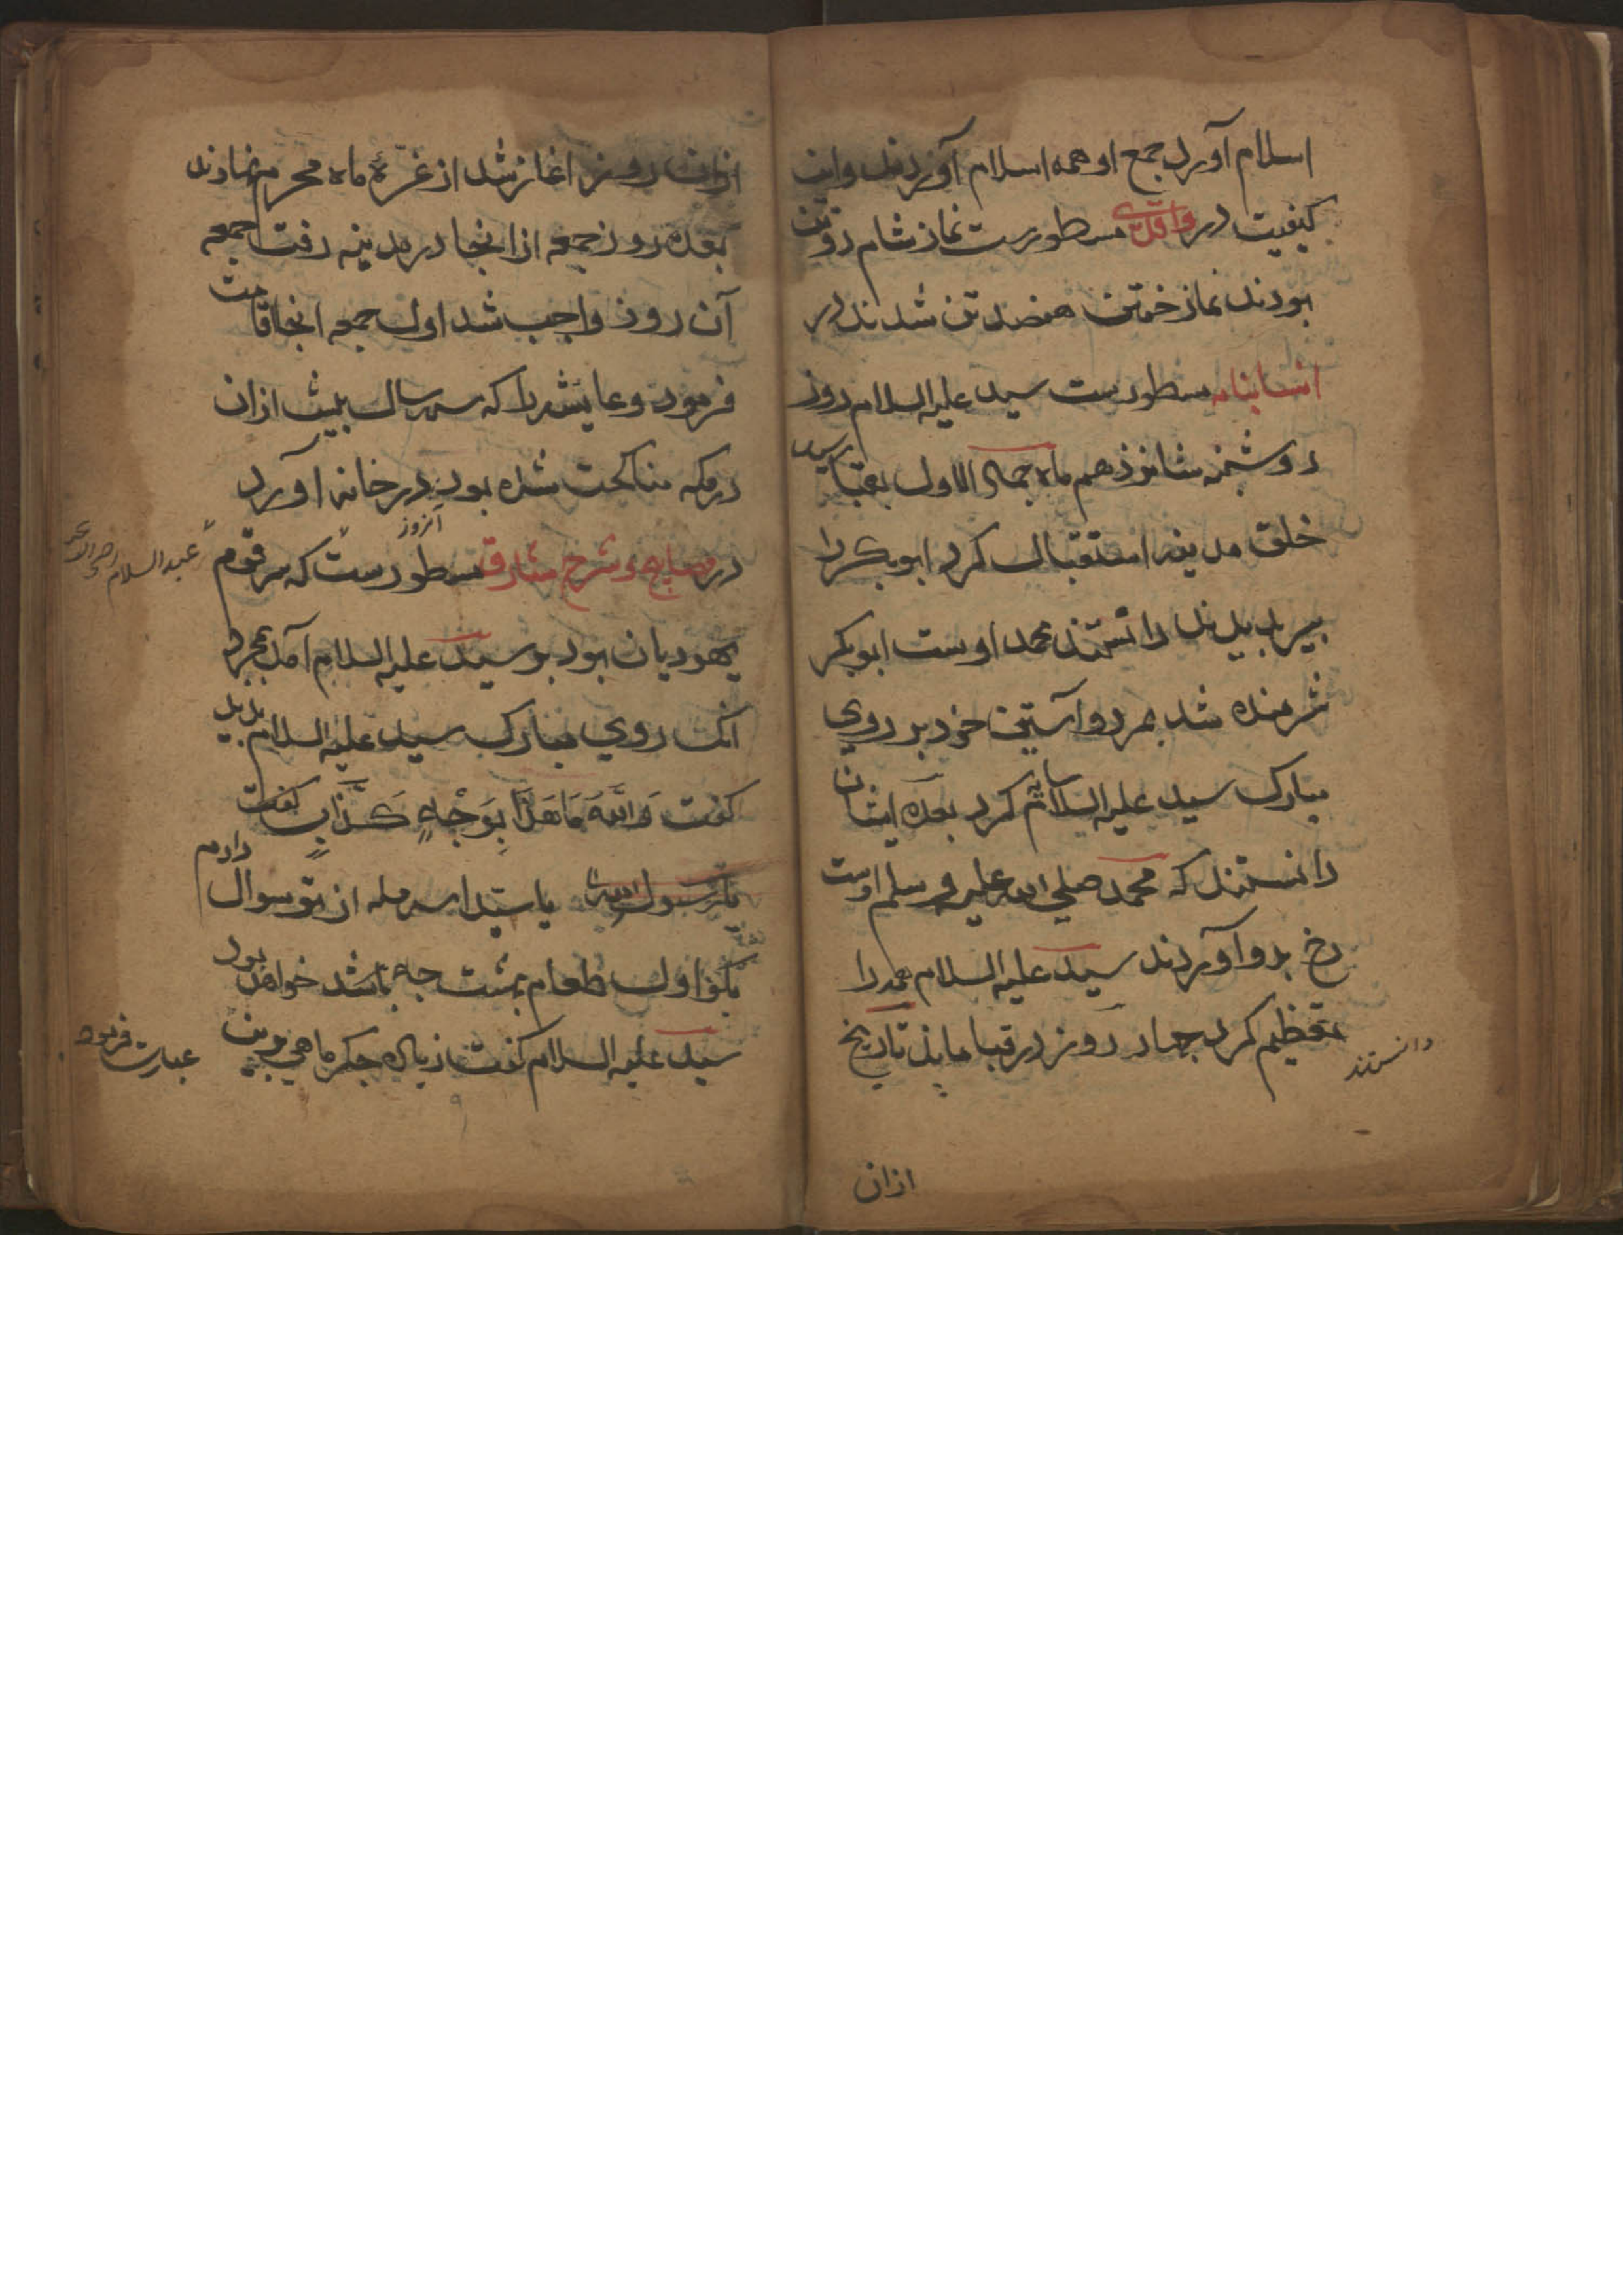 اسلام آورد جمع او همه اسلام آوردند و این
کیفیت در واقدی مسطورست نماز شام دو تن
بودند نماز خفتن هفصد تن شدند در
انسابنامه مسطورست سید علیه السلام روز
دوشنبه شانزدهم ماه جمادی الاول بقبا رسید
خلق مدینه استقبال کرد ابوبکر را
پیر بدیدند دانستند محمد اوست ابوبکر
شرمنده شد هر دو آستین خود بر روی
مبارک سید علیه السلام سایه کرد بعده ایشان
دانستند که محمد صلی الله علیه و سلم اوست
رخ بدو آوردند سید علیه السلام همه را
تعظیم کرد چهار روز در قبا ماند تاریخ
دانستند
ازان
ازان روز اغاز شد از غرّهٔ ماه محرم نهادند
بعده روز جمعه از انجا در مدینه رفت جمعه
آن روز واجب شد اول جمعه انجا اقامت
فرمود و عایشه را که سه سال پیش ازان
در مکه مناکحت شده بود در خانه اورد
در مصابیح و شرح مشارق مسطورست که سر قوم
آنروز
عبد السلام
یهودیان بود بر سید علیه السلام آمد بمجرد
انک روی مبارک سید علیه السلام بدید
گفت وَاللّٰهِ مَا هَذَا بِوَجْهِ كَذَّابٍ گفت
یا رسول الله یا سید سه مسله از تو سوال دارم
بگو اول طعام بهشت چه باشد خواهد بود
سید علیه السلام گفت زیاده جگر ماهی
عبارت فرمود